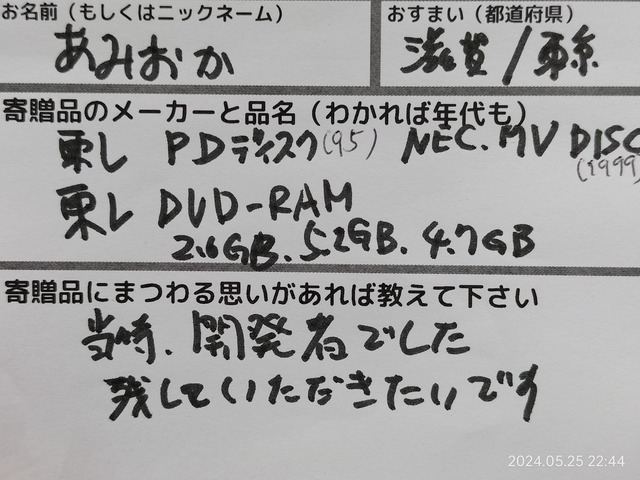 お名前（もしくはニックネーム）
あみおか
おすまい（都道府県）
滋賀/東京
寄贈品のメーカーと品名（わかれば年代も）
東レ PDディスク(95) NEC. MV DISC
(1999)
東レ DVD-RAM
2.6GB. 5.2GB. 4.7GB
寄贈品にまつわる思いがあれば教えて下さい
当時、開発者でした
残していただきたいです
2024.05.25 22:44